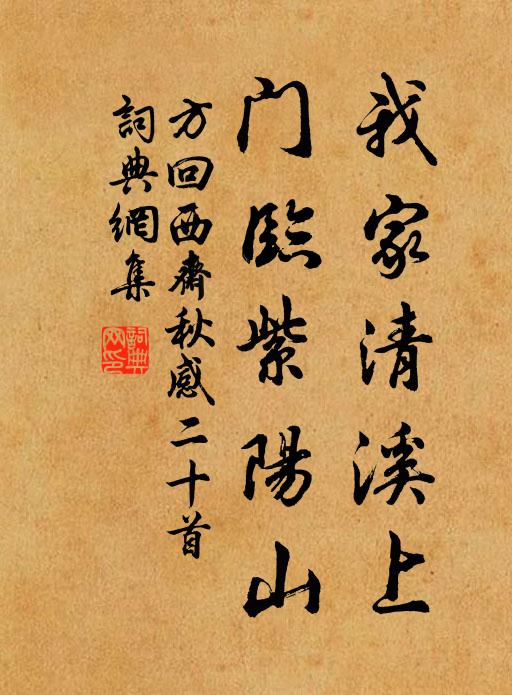 我家清溪上
门臨紫陽山
方回西齋秋感二十首
詞典網集
詞典网印